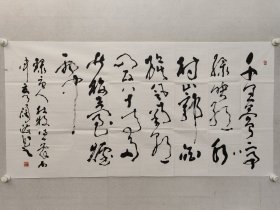 千里莺啼
绿映红水
村山郭酒
旗风南朝
四百八十寺多
少楼台烟
雨中
录唐人杜牧诗